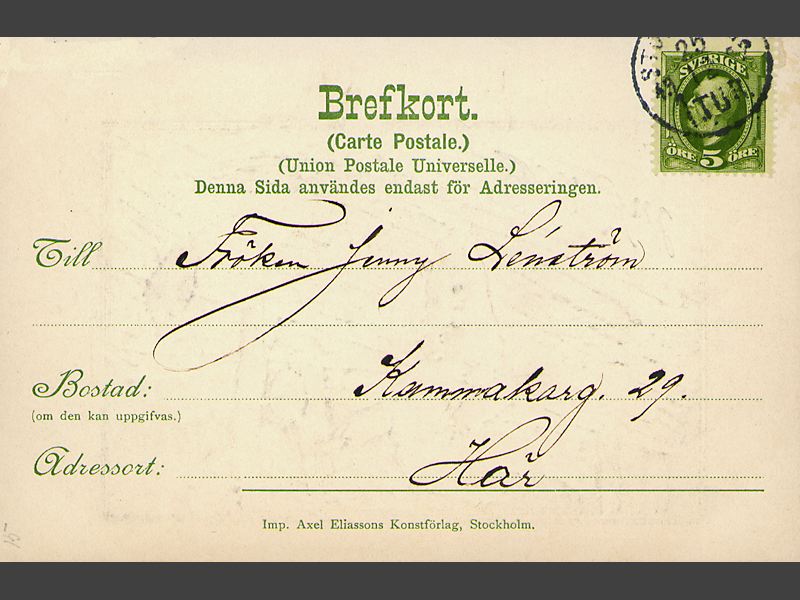 SVERIGE
ÖRE 5 ÖRE
Brefkort.
(Carte Postale.)
(Union Postale Universelle.)
Denna Sida användes endast för Adresseringen.
Till Fröken Jenny Lenström
Bostad: Kammakarg. 29.
(om den kan uppgifvas.)
Adressort: Här
Imp. Axel Eliassons Konstförlag, Stockholm.